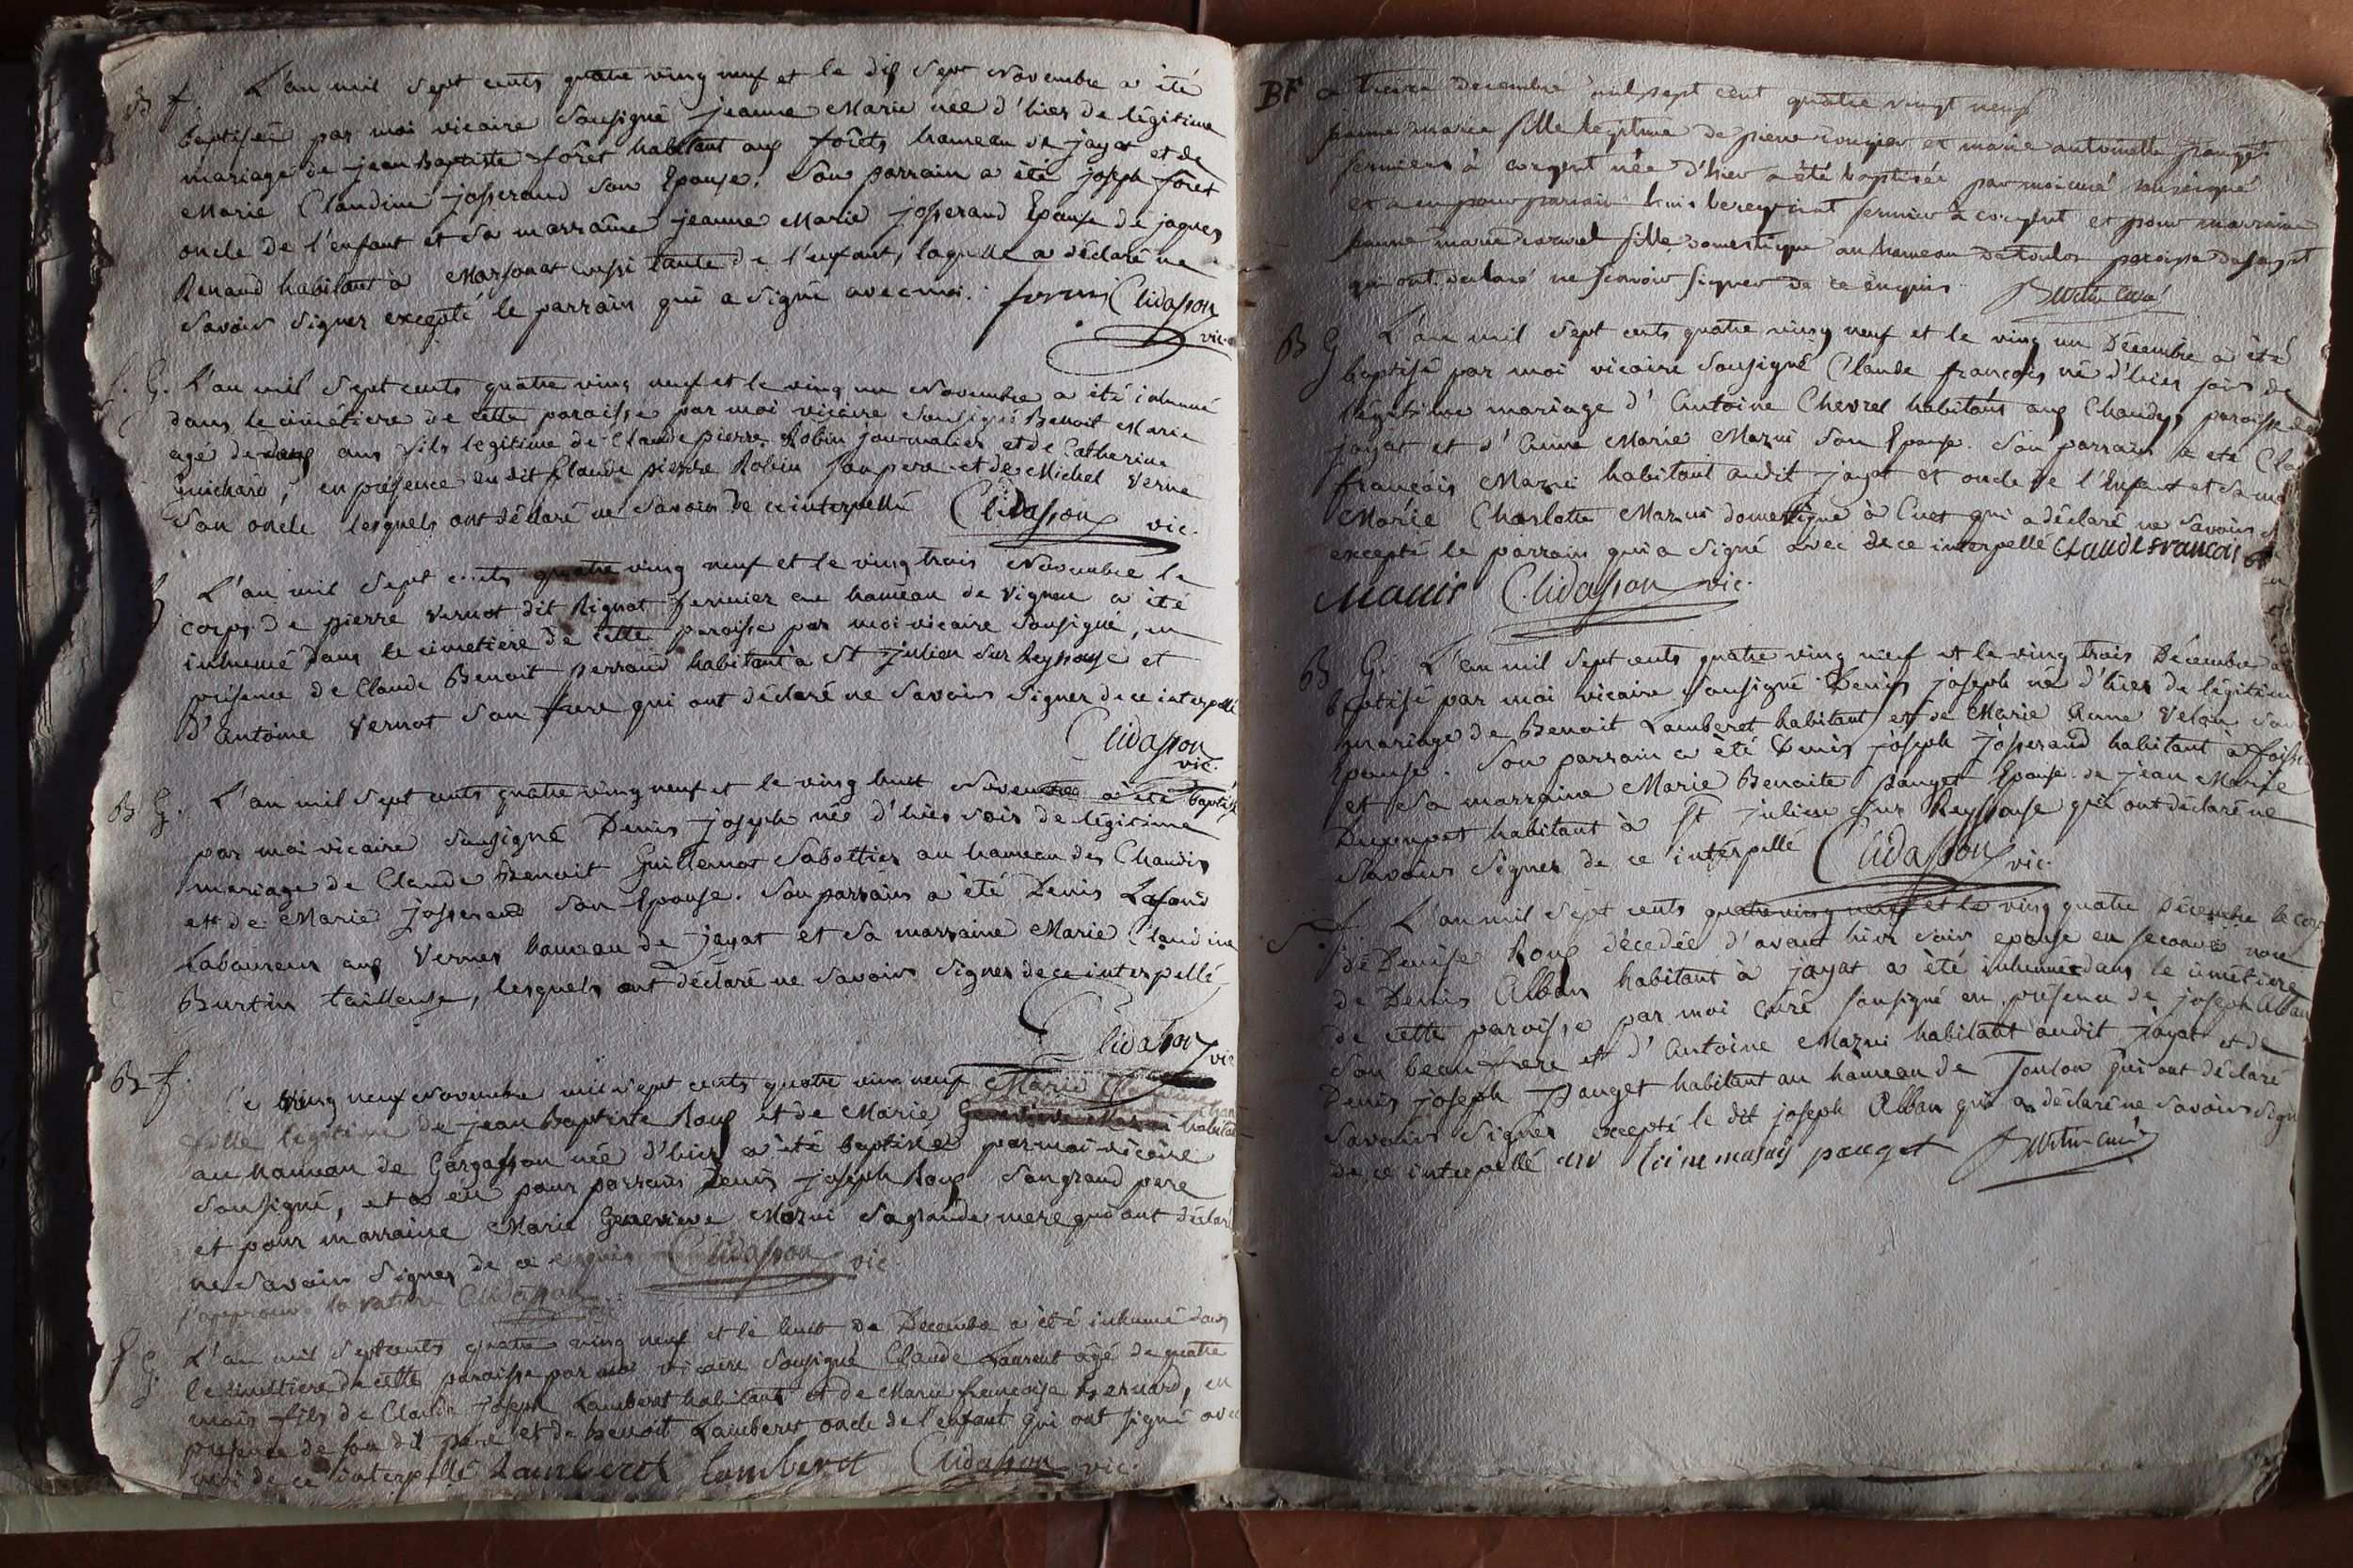 B f. L'an mil sept cents quatre ving neuf et le dix sept Novembre a été
baptisée par moi vicaire Sousigné jeanne Marie née d'hier de légitime
mariage de jean Baptiste forêt habitant aux forêts hameau de jayat et de
Marie Claudine josserand Son Epouse. Son parrain a été joseph forêt
oncle de l'enfant et Sa marraine jeanne Marie josserand Epouse de jaques
Renaud habitant à Marsonat aussi tante de l'enfant, laquelle a déclaré ne
Savoir Signer excepté le parrain qui a Signé avec moi. Clidasson
vic.
G. L'an mil Sept cents quatre ving neuf et le ving un Novembre a été inhumé
dans le cimétiere de cette paroisse par moi vicaire Sousigné Benoit Marie
agé de ans fils legitime de Claude pierre Robin journalier et de Catherine
Guichard, en présence du dit Claude pierre Robin Son pere et de Michel Verne
Son oncle lesquels ont déclaré ne Savoir de ce interpellé Clidasson vic.
L'an mil Sept cents quatre ving neuf et le ving trois Novembre le
corps de pierre Vernot dit Rignat fermier au hameau de Vigneu a été
inhumé dans le cimetiere de cette paroisse par moi vicaire Sousigné, en
présence de Claude Benoit perraud habitant à St julien Sur Reyssouse et
d'Antoine Vernot Son frere qui ont déclaré ne Savoir Signer de ce interpellé
Clidasson
vic.
B G. L'an mil Sept cents quatre ving neuf et le ving huit Novembre a été baptisé
par moi vicaire Sousigné Denis joseph née d'hier soir de légitime
mariage de Claude Benoit Guillemot Sabottier au hameau des Chaudis
et de Marie josserand Son Epouse. Son parrain a été Denis Lafond
Laboureur aux Vernes hameau de jayat et Sa marraine Marie Claudine
Burtin tailleuse, lesquels ont déclaré ne Savoir Signer de ce interpellé
Clidasson vic
B f. Le ving neuf Novembre mil sept cents quatre ving neuf Marie
fille légitime de jean Baptiste Roux et de Marie habitant
au hameau de Gargasson née d'hier a été baptisée par moi vicaire
Sousigné, et a eu pour parrain Denis joseph Roux Son grand pere
et pour marraine Marie Genevieve Mazui Sa grande mere qui ont déclaré
ne Savoir Signer de ce enquis Clidasson vic.
j'approuve la rature Clidasson
G. L'an mil Sept cents quatre ving neuf et le huit de Decembre a été inhumé dans
le cimettiere de cette paroisse par moi vicaire Sousigné Claude Laurent âgé de quatre
mois fils de Claude joseph Lamberet habitant et de Marie françoise Bernard, en
presence de Son dit pere et de Benoit Lamberet oncle de l'enfant qui ont signé avec
moi de ce interpellé Lamberet Lamberet Clidasson vic.
BF Le treize decembre mil sept cent quatre vingt neuf
jeanne marie fille legitime de pierre et marie antoinette pauget
fermiers à née d'hier a été baptisée par moi curé soussigné
et a eu pour parrain fermier à et pour marraine
jeanne marie fille domestique au hameau de toulon paroisse de jayat
qui ont declaré ne scavoir signer de ce enquis Burtin Curé
B G L'an mil Sept cents quatre ving neuf et le ving un Décembre a été
baptisé par moi vicaire Sousigné Claude françois né d'hier soir de
légitime mariage d'Antoine Chevrel habitant aux Chaudys paroisse de
jayat et d'Anne Marie Mazui Son Epouse. Son parrain a été Cla
françois Mazui habitant audit jayat et oncle de l'Enfant et Sa ma
Marie Charlotte Mazui domestique à Cuet qui a déclaré ne Savoir
excepté le parrain qui a Signé avec de ce interpellé Claude francois
Clidasson vic.
B G. L'an mil Sept cents quatre ving neuf et le ving trois Décembre a
baptisé par moi vicaire Sousigné Denis joseph né d'hier de légitime
mariage de Benoit Lamberet habitant et de Marie Anne Velon Son
Epouse. Son parrain a été Denis joseph josserand habitant à
et Sa marraine Marie Benoite pauget Epouse de jean Marie
habitant à St julien Sur Reyssouse qui ont déclaré ne
Savoir Signer de ce interpellé Clidasson vic.
f. L'an mil Sept cents quatre ving neuf et le ving quatre Décembre le corps
de Denise Roux décedée d'avant hier soir epouse en seconde noce
de Denis Alban habitant à jayat a été inhumée dans le cimétiere
de cette paroisse par moi curé Sousigné en présence de joseph Alban
Son beau frere et d'Antoine Mazui habitant audit jayat et de
Denis joseph pauget habitant au hameau de Toulon qui ont déclaré
Savoir Signer excepté le dit joseph Alban qui a déclaré ne Savoir Sign
de ce interpellé pauget Burtin Curé